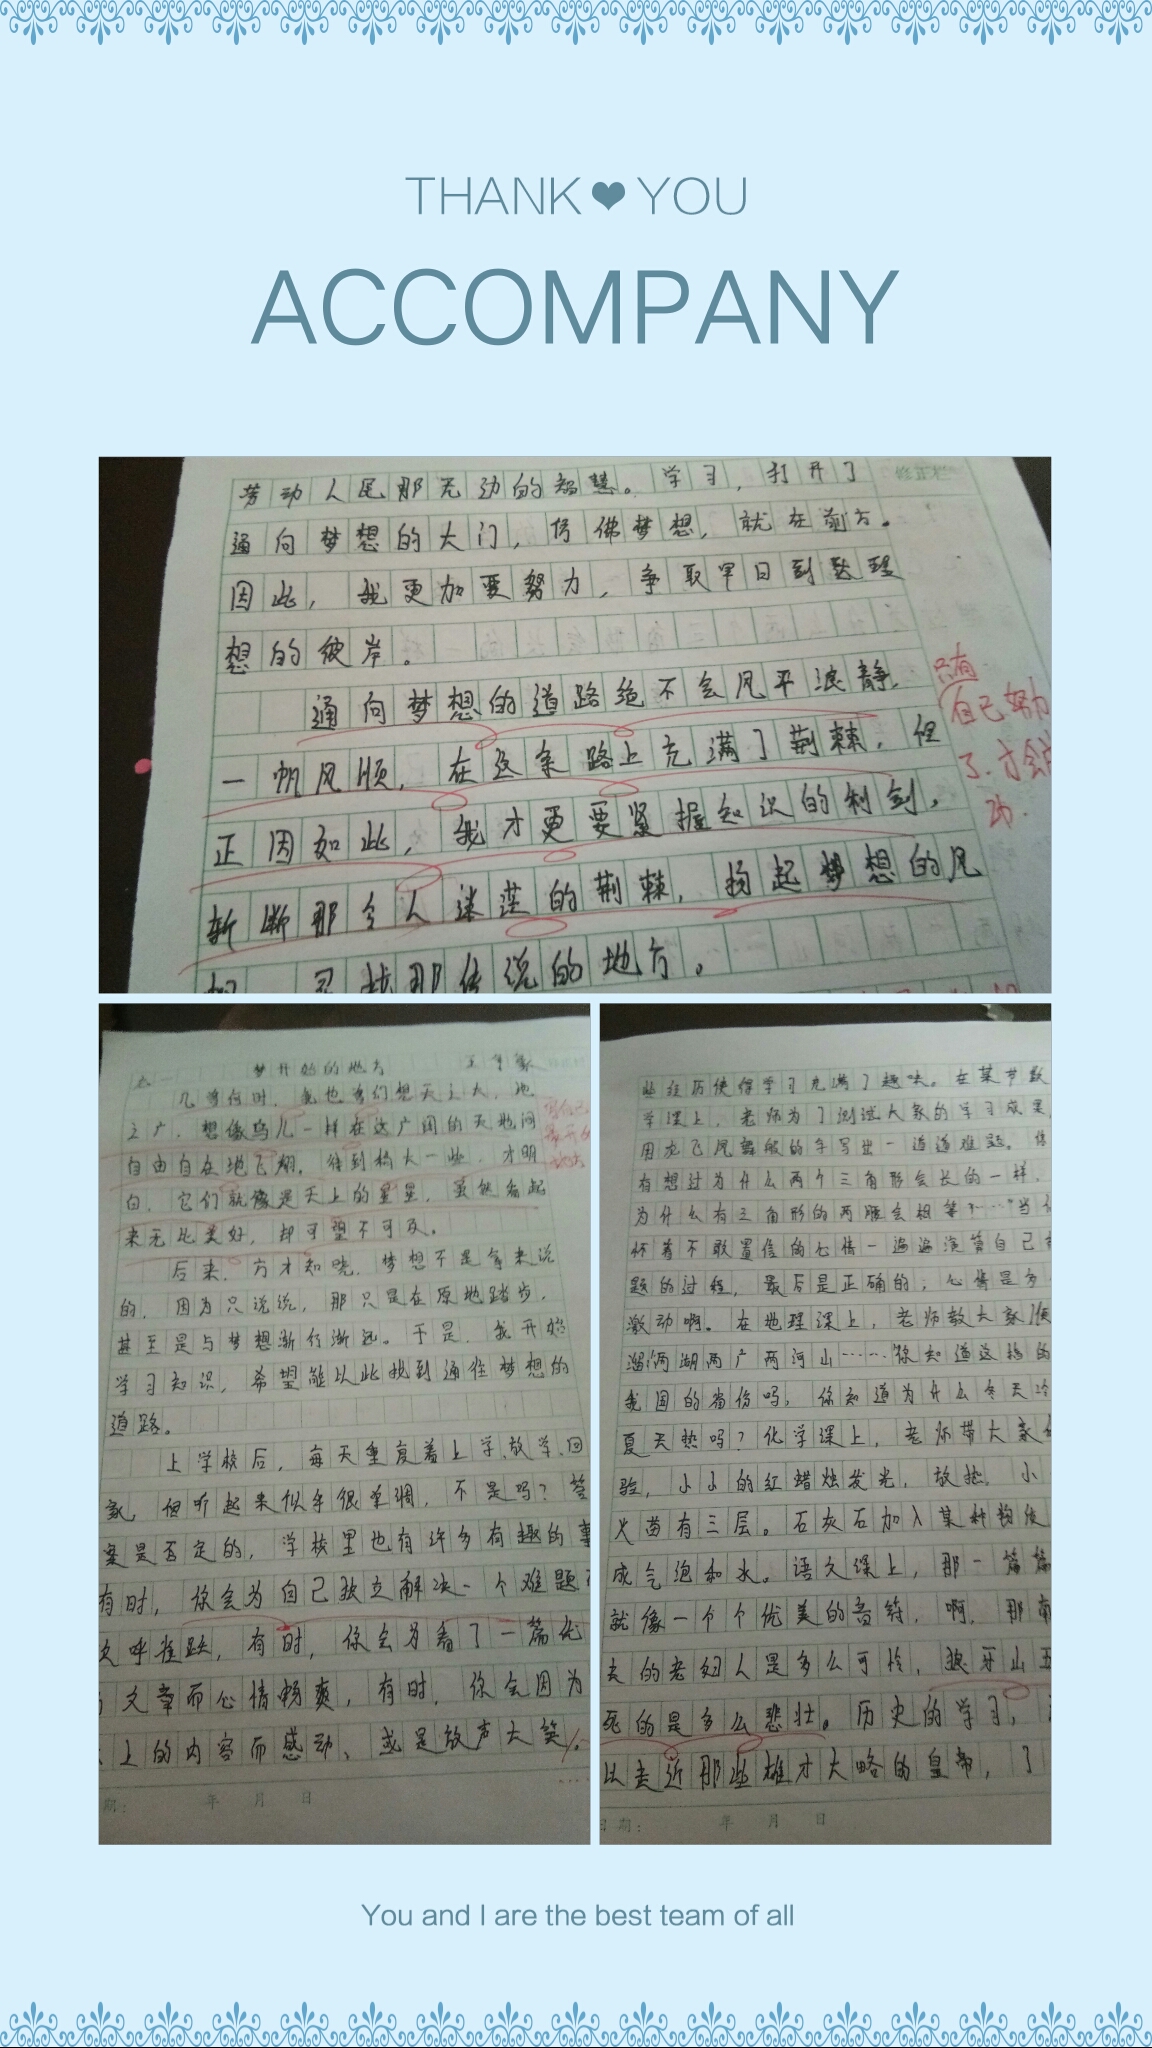 THANK❤YOU
ACCOMPANY
劳动人民那无边的智慧。学习，打开了
修正栏
通向梦想的大门，仿佛梦想，就在前方。
因此，我更加要努力，争取早日到达理
想的彼岸。
通向梦想的道路绝不会风平浪静，
一帆风顺，在这条路上充满了荆棘，但
正因如此，我才更要紧握知识的利剑，
斩断那令人迷茫的荆棘，扬起梦想的风
寻找那传说的地方。
只有
自己努力
了，才会
功.
梦开始的地方
几曾何时，我也曾们想天之大，地
之广，想像鸟儿一样在这广阔的天地间
自由自在地飞翔，待到稍大一些，才明
白，它们就像是天上的星星，虽然看起
来无比美好，却可望不可及。
后来，方才知晓，梦想不是拿来说
的，因为只说说，那只是在原地踏步，
甚至是与梦想渐行渐远。于是，我开始
学习知识，希望能以此找到通往梦想的
道路。
上学校后，每天重复着上学、放学、回
家，但听起来似乎很单调，不是吗？答
案是否定的，学校里也有许多有趣的事
有时，你会为自己独立解决一个难题
欢呼雀跃，有时，你会为看了一篇优
文章而心情畅爽，有时，你会因为
上的内容而感动、或是放声大笑。
期： 年 月 日
些经历使得学习充满了趣味。在某节数
学课上，老师为了测试大家的学习成果
用龙飞凤舞般的手写出一道道难题。你
有想过为什么两个三角形会长的一样，
为什么有三角形的两腰会相等？……当你
怀着不敢置信的心情一遍遍演算自己
题的过程，最后是正确的；心情是多
激动啊。在地理课上，老师教大家顺
溜：两湖两广两河山……你知道这指的
我国的省份吗，你知道为什么冬天冷
夏天热吗？化学课上，老师带大家
验，小小的红蜡烛发光，放热。小
火苗有三层。石灰石加入某种物
成气泡和水。语文课上，那一篇篇
就像一个个优美的音符，啊，那
去的老妇人是多么可怜，狼牙山五
死的是多么悲壮。历史的学习，
以走近那些雄才大略的皇帝，了
日期： 年 月 日
You and I are the best team of all